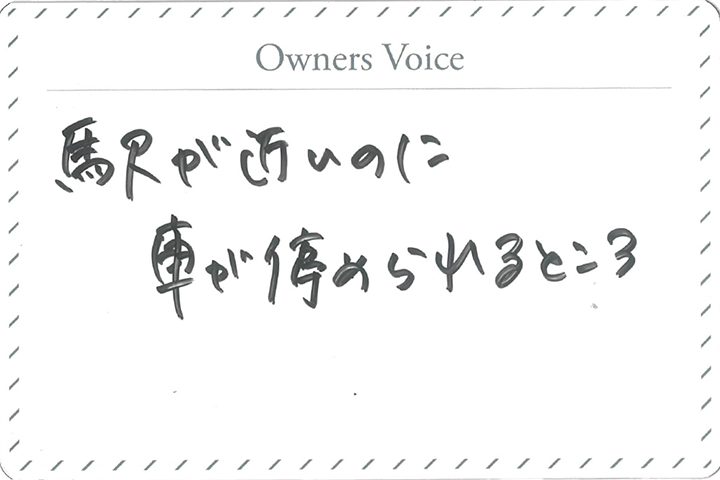 Owners Voice
駅が近いのに
車が停められるところ